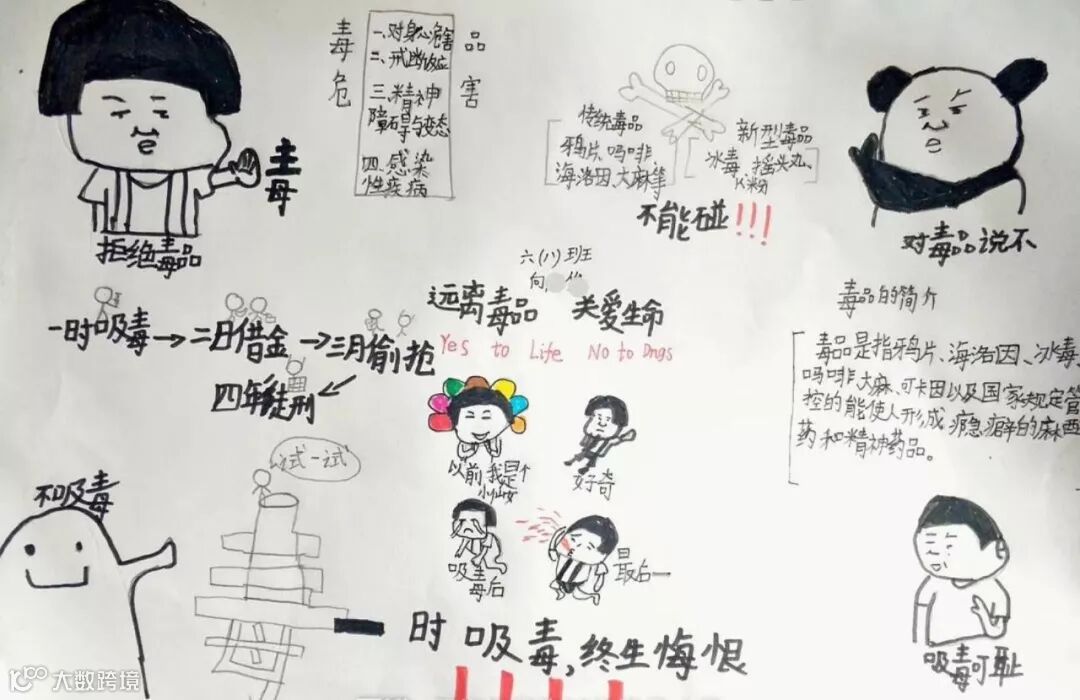 毒 品
危 害
一、对身心危害
二、戒断反应
三、精神
障碍与变态
四、感染
性疾病
传统毒品
鸦片、吗啡、
海洛因、大麻等
新型毒品
冰毒、摇头丸、
K粉
不能碰!!!
主
毋
拒绝毒品
对毒品说不
六(八)班
向
远离毒品 关爱生命
Yes to Life No to Drugs
一时吸毒→二日借金→三月偷抢
四年徒刑
毒品的简介
毒品是指鸦片、海洛因、冰毒、
吗啡、大麻、可卡因以及国家规定管
控的能使人形成瘾癖的麻醉
药和精神药品。
以前,我是个
小仙女
好奇
吸毒后
最后一
不吸毒
试一试
一时吸毒,终生悔恨
!!!!
吸毒可耻
大数跨境